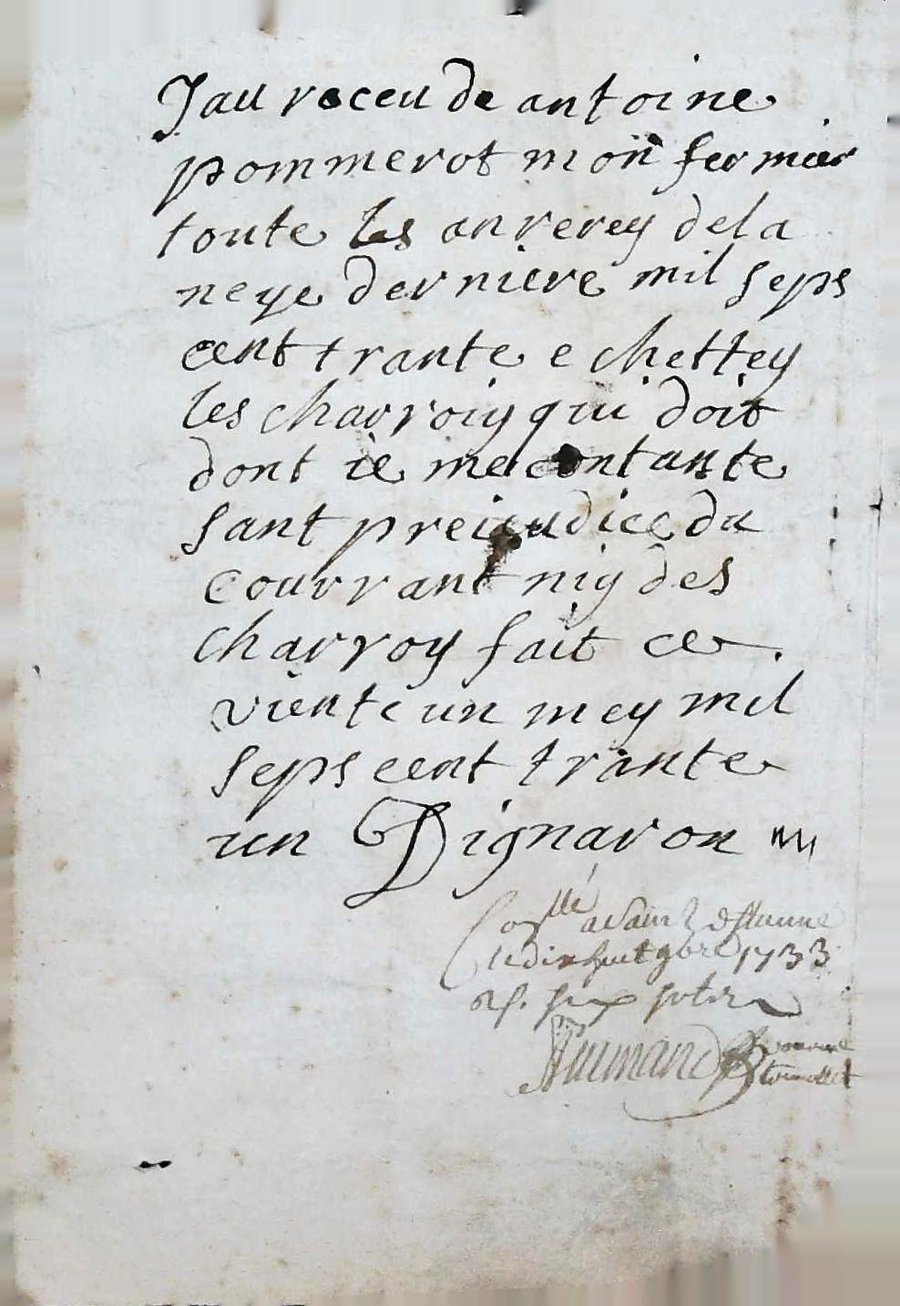 Jau receu de antoine
pommerot mon fermier
toute les anrerey dela
neye derniere mil seps
cent trante e chettey
les charroiy qui doit
dont ie me contante
sant preiudice du
courrant niy des
charroy fait ce
viente un mey mil
seps cent trante
un Dignaron
a Saint Estienne
le dix huit 9bre 1733
six solz